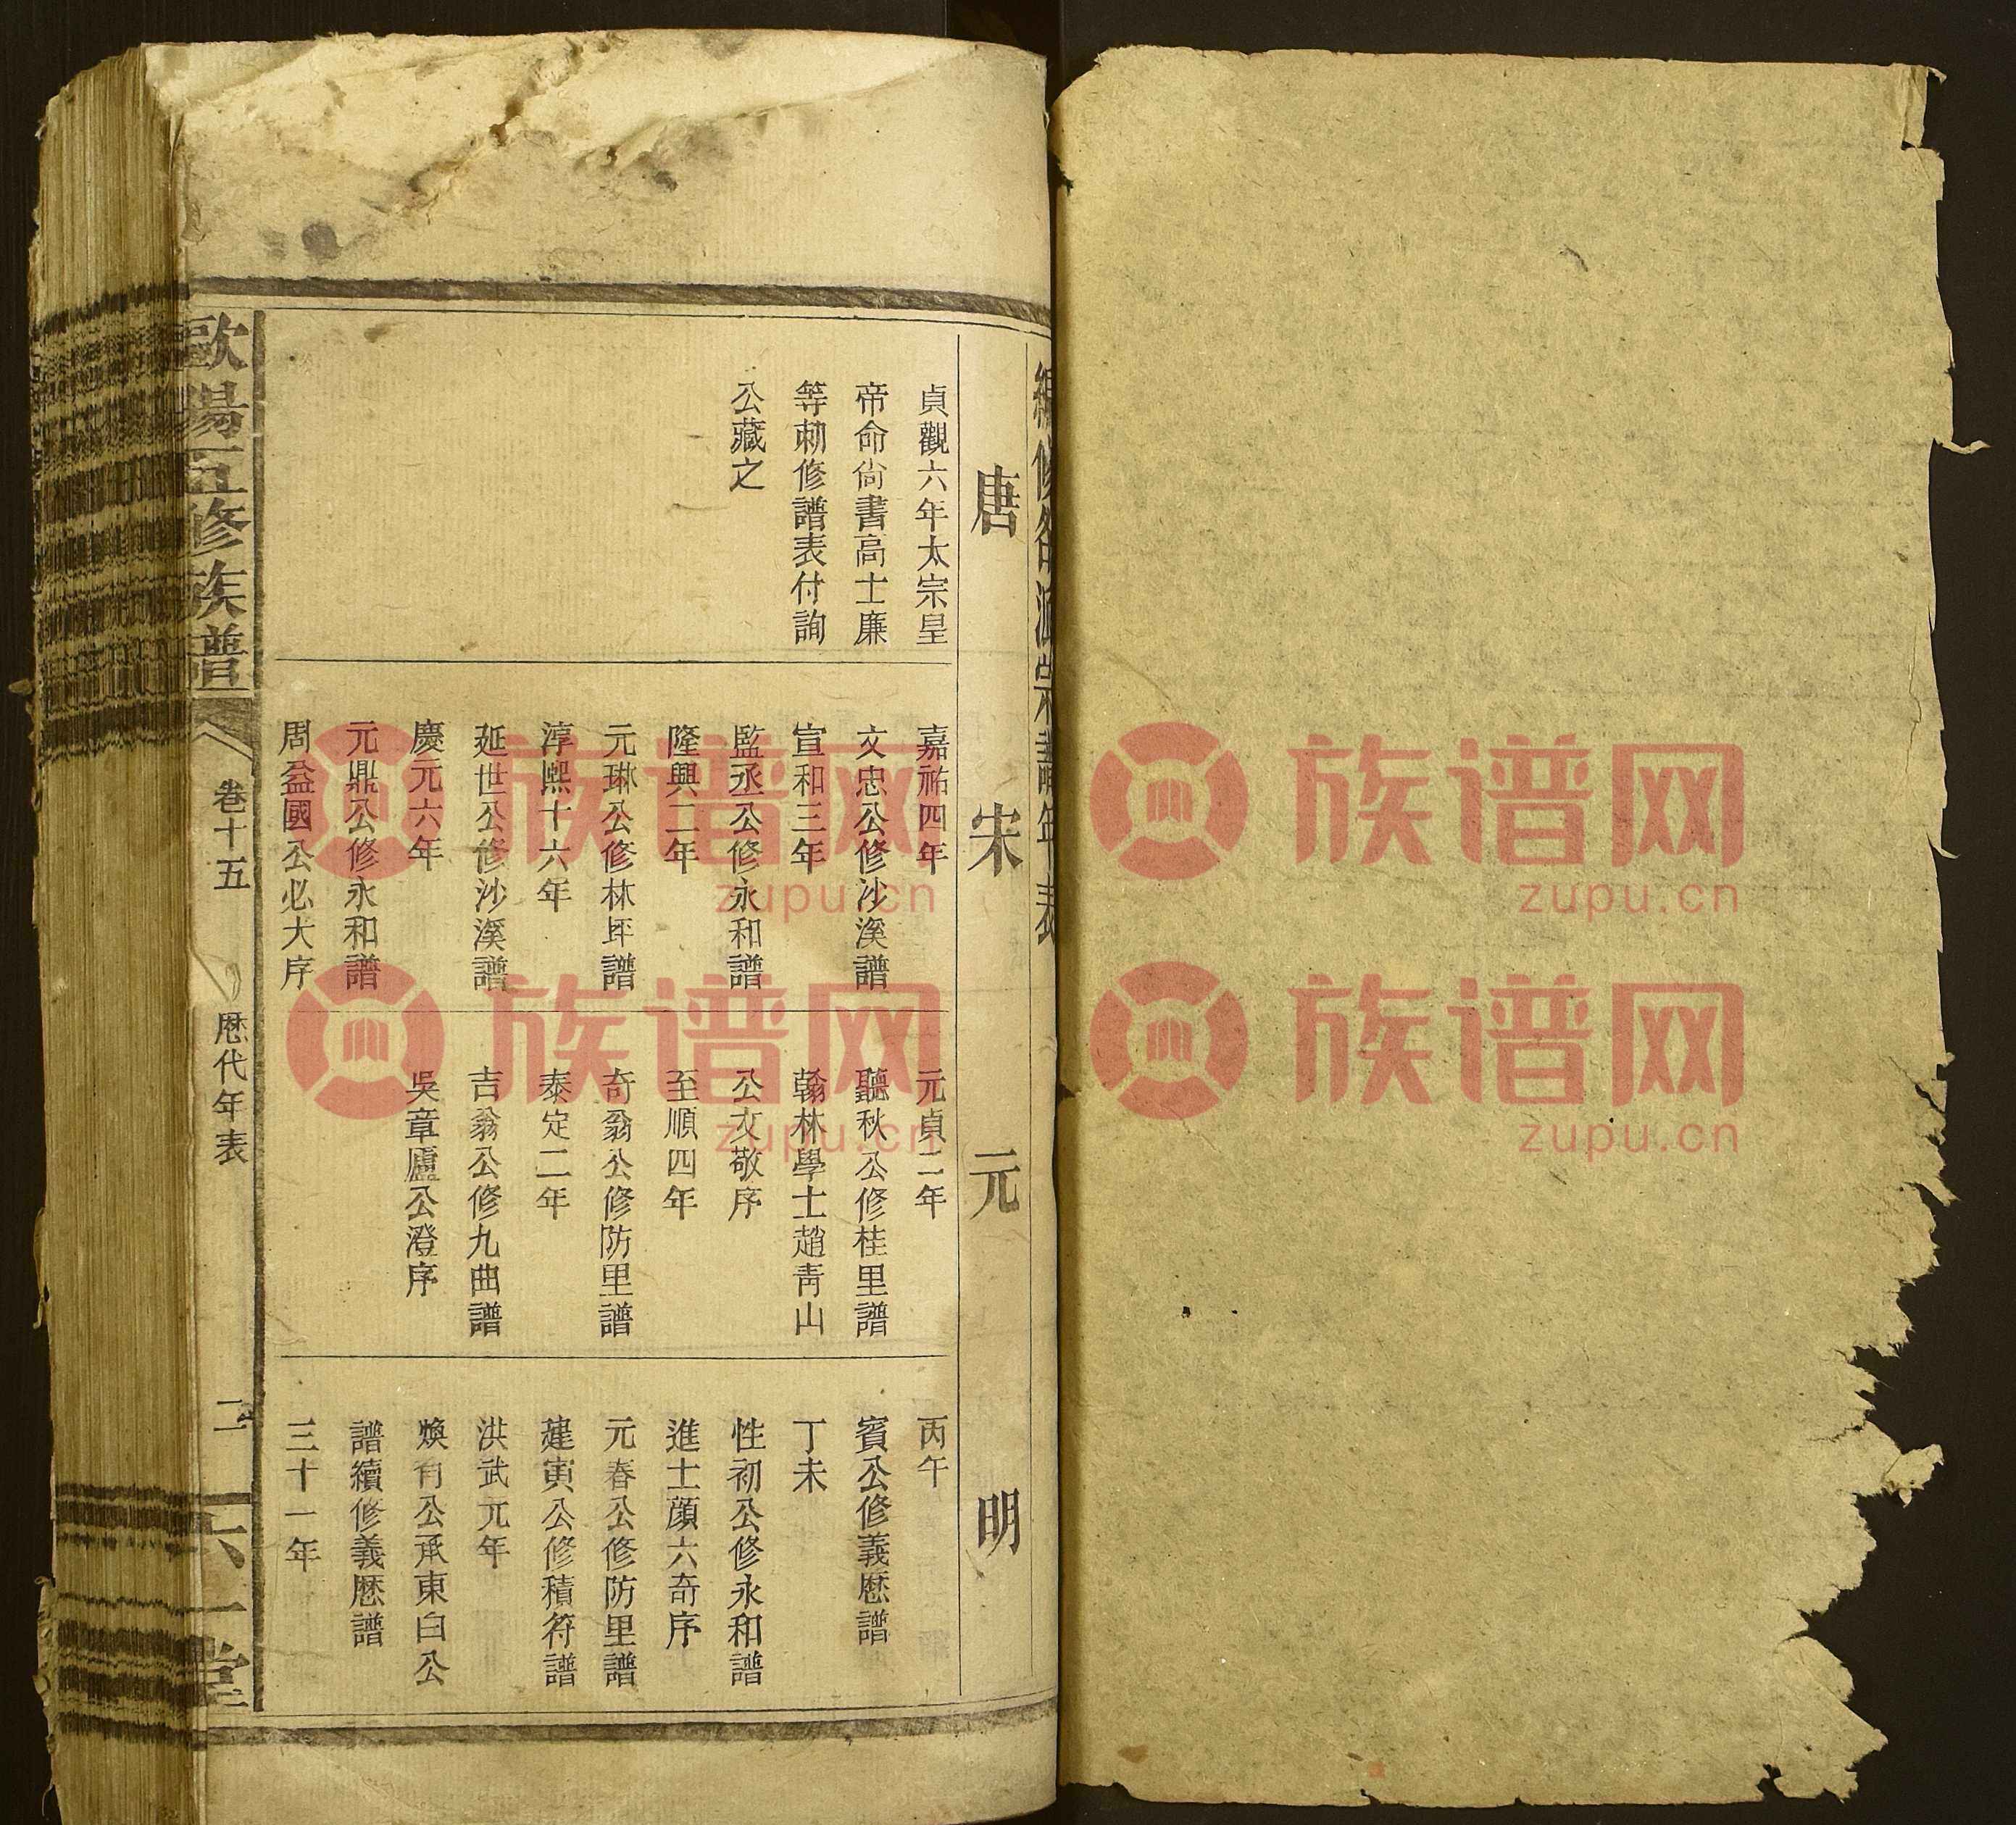 編修各派宗譜年表
唐
貞觀六年太宗皇
帝命尙書高士廉
等勅修譜表付詢
公藏之
宋
嘉祐四年
文忠公修沙溪譜
宣和三年
監丞公修永和譜
隆興二年
元琳公修林坪譜
淳熙十六年
延世公修沙溪譜
慶元六年
元鼎公修永和譜
周益國公必大序
元
元貞二年
聽秋公修桂里譜
翰林學士趙靑山
公文敬序
至順四年
奇翁公修防里譜
泰定二年
吉翁公修九曲譜
吳章廬公澄序
明
丙午
賓公修義歷譜
丁未
性初公修永和譜
進士顔六奇序
元春公修防里譜
建寅公修積符譜
洪武元年
煥有公承東白公
譜續修義歷譜
三十一年
歐陽五修族譜
卷十五
歷代年表
二
六一堂
族谱网
zupu.cn
族谱网
zupu.cn
族谱网
zupu.cn
族谱网
zupu.cn